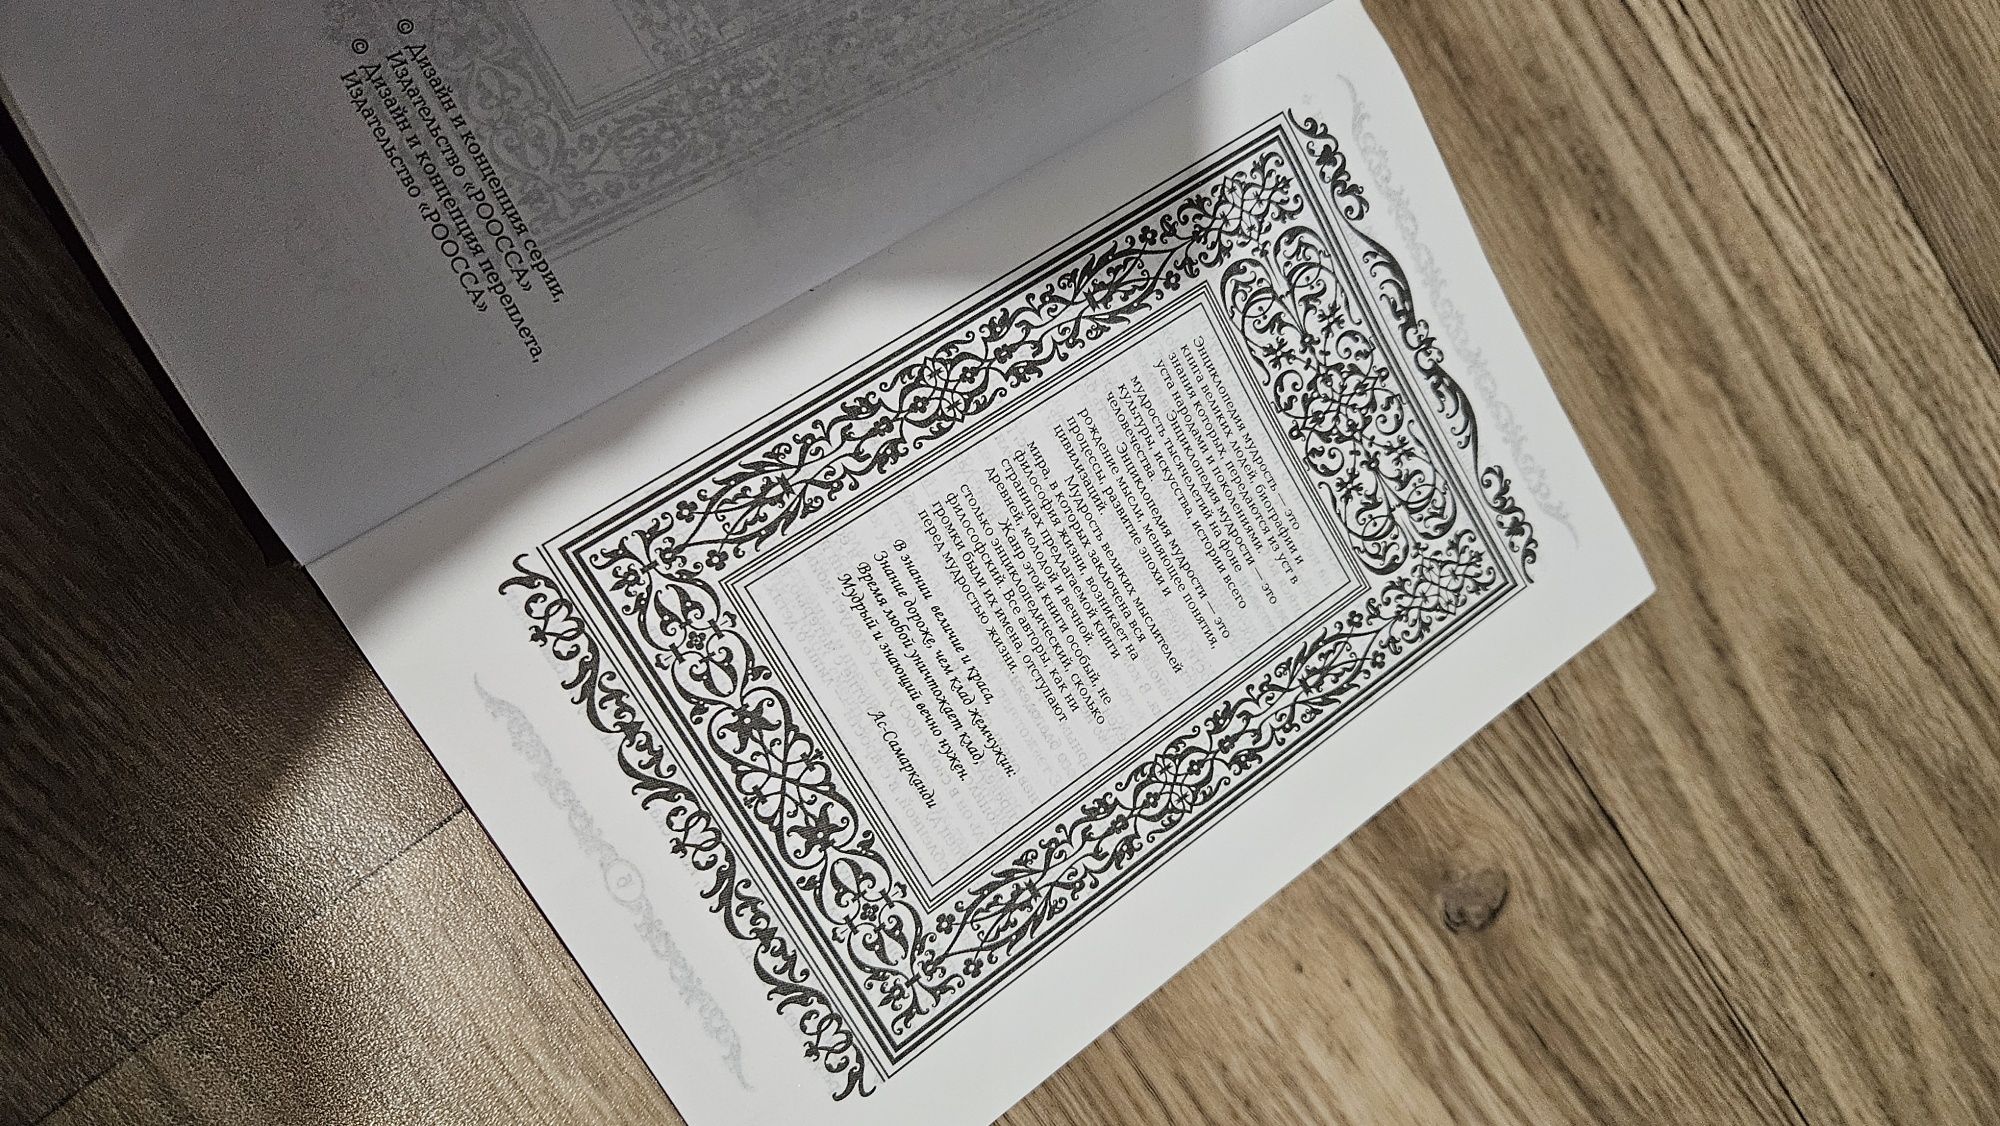 © Дизайн и концепция серии,
Издательство «РООССА»
© Дизайн и концепция переплета,
Издательство «РООССА»
Энциклопедия мудрость — это
книга великих людей, биографии и
знания которых, передаются из уст в
уста народами и поколениями.
Энциклопедия мудрости — это
мудрость тысячелетий на фоне
культуры, искусства, истории всего
человечества.
Энциклопедия мудрости — это
рождение мысли, меняющее понятия,
процессы, развитие эпохи и
цивилизаций.
Мудрость великих мыслителей
мира, в которых заключена вся
философия жизни, возникает на
страницах предлагаемой книги
древней, молодой и вечной.
Жанр этой книги особый, не
столько энциклопедический, сколько
философский. Все авторы, как ни
громки были их имена, отступают
перед мудростью жизни.
В знании величие и краса,
Знание дороже, чем клад жемчужин:
Время любой уничтожает клад,
Мудрый и знающий вечно нужен.
Ас-Самарканди